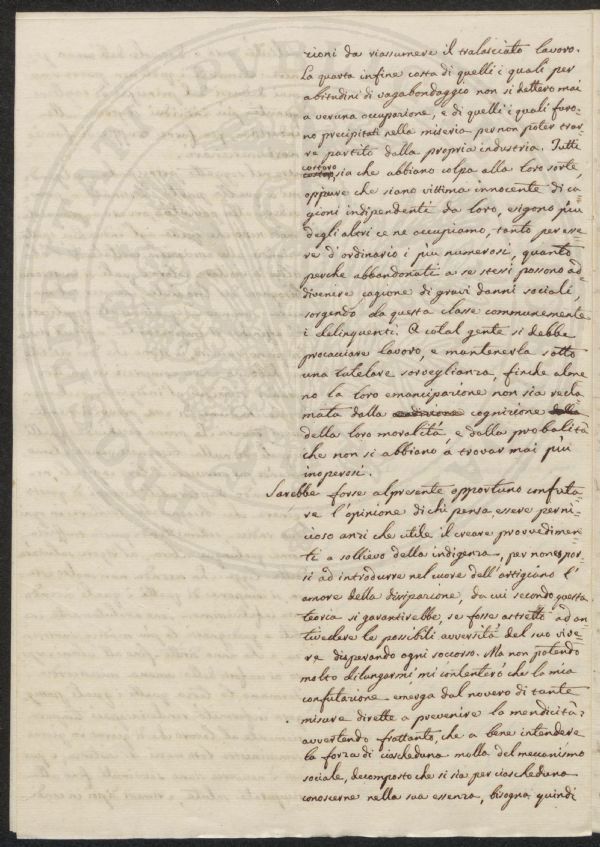 zioni da riassumere il tralasciato lavoro.
La quarta infine costa di quelli i quali per
abitudini di vagabondaggio non si dettero mai
a veruna occupazione, e di quelli i quali furo=
no precipitati nella miseria per non poter trar=
re partito dalla propria industria. Tutti
costoro
sia che abbiano colpa alla loro sorte,
oppure che siano vittima innocente di ca=
gioni indipendenti da loro, esigono più
degli altri ce ne occupiamo, tanto per esse=
re d'ordinario i più numerosi, quanto
perche abbandonati a se stessi possono ad=
divenire cagione di gravi danni sociali,
sorgendo da questa classe communemente
i delinquenti. A cotal gente si debbe
procacciare lavoro, e mantenerla sotto
una tutelare sorveglianza, finche alme=
no la loro emancipazione non sia recla=
mata dalla cognizione
della loro moralità, e dalla probalità
che non si abbiano a trovar mai più
inoperosi.
Sarebbe forse al presente opportuno confuta=
re l'opinione di chi pensa essere perni=
cioso anzi che utile il creare provvedimen=
ti a sollievo della indigenza, per non espor=
si ad introdurre nel cuore dell'artigiano l'
amore della dissipazione, da cui secondo questa
teoria si garantirebbe, se fosse astretto ad an=
tivedere le possibili avversità del suo vive=
re disperando ogni soccorso. Ma non potendo
molto dilungarmi mi contenterò che la mia
confutazione emerga dal novero di tante
misure dirette a prevenire la mendicità:
avvertendo frattanto, che a bene intendere
la forza di ciascheduna molla del meccanismo
sociale, decomposto che si sia per ciascheduna
conoscerne nella sua essenza, bisogna quindi